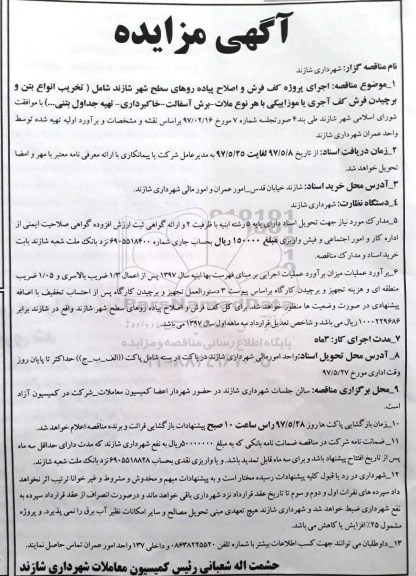 آگهی مزایده
نام مناقصه گزار: شهرداری شازند
1_موضوع مناقصه: اجرای پروژه کف فرش و اصلاح پیاده روهای سطح شهر شازند شامل ( تخریب انواع بتن و
برچیدن فرش کف آجری یا موزاییکی با هر نوع ملات-برش آسفالت-خاکبرداری- تهیه جداول بتنی...) با موافقت
شورای اسلامی شهر شازند طی بند4 صورتجلسه شماره 7 مورخ 97/02/16 براساس نقشه و مشخصات و برآورد اولیه تهیه شده توسط
واحد عمران شهرداری شازند
2_زمان دریافت اسناد: از تاریخ 97/5/8 لغایت 97/5/25 به مدیرعامل شرکت یا پیمانکاری با ارائه معرفی نامه معتبر با مهر و امضا
تحویل خواهد شد.
3_آدرس محل خرید اسناد: شازند خیابان قدس_امور عمران و امور مالی شهرداری شازند.
4_دستگاه نظارت: شهرداری شازند
5_مدارک مورد نیاز جهت تحویل اسناد دارای پایه 5 رشته ابنیه با ظرفیت 2 و ارائه گواهی ثبت ارزش افزوده گواهی صلاحیت ایمنی از
اداره کار و امور اجتماعی و فیش واریزی مبلغ 150000 ریال بحساب جاری شماره 6905518400 نزد بانک ملت شعبه شازند بابت
خرید اسناد و مدارک مناقصه.
6_برآورد عملیات میزان برآورد عملیات اجرایی بر مبنای فهرست بها ابنیه سال 1397 پس از اعمال 1/3 ضریب بالاسری و 1/05 ضریب
منطقه ای و هزینه تجهیز و برچیدن کارگاه براساس پیوست 3 دستورالعمل تجهیز و برچیدن کارگاه پس از احتساب تخفیف با اضافه
پیشنهادی در صورت وضعیت ها منظور خواهد شد. برای کل کفت فرش و اصلاح پیاده روهای سطح شهر شازند واقع در شازند برابر
1000229686 ریال می باشد و شاخص تعدیل قرارداد سه ماهه اول سال 1397 می باشد.
7_مدت اجرای کار: 3ماه
8_آدرس محل تحویل اسناد: واحد امورمالی شهرداری شازند درپاکت در بسته شامل پاکت ((الف_ب_ج)) حداکثر تا پایان روز
وقت اداری مورخ 97/5/27
9_محل برگزاری مناقصه: سالن جلسات شهرداری شازند در حضور شهردار اعضا کمیسیون معاملات_شرکت در کمیسیون آزاد
است.
10_زمان بازگشایی پاکت ها روز 97/5/28 راس ساعت 10 صبح پیشنهادات بازگشایی قرائت و برنده مناقصه اعلام خواهد شد.
11_ضمانت نامه شرکت در مناقصه ضمانت نامه بانکی که به مبلغ 50000000ریال به نفع شهرداری شازند که مدت دارای حداقل سه ماه
پس از تاریخ افتتاح پیشنهاد باشد و برای سه ماه قابل تمدید باشد. و یا واریزی نقدی بحساب 6905518828 نزد بانک ملت شعبه شازند.
12_شهرداری در رد یا قبول کلیه پیشنهادات رسیده مختار است و به پیشنهادات مبهم و مخدوش و مشروط و غیر خوانا ترتیب اثر نخواهد
داد سپرده های نفرات اول و دوم و سوم تا تاریخ عقد قرارداد نزد شهرداری باقی خواهد ماند و درصورت انصراف از عقد قرارداد سپرده به
نفع شهرداری ضبط خواهد شد و شهرداری شازند هیچ تعهدی مبنی تحویل مصالح و سایر امکانات نظیر آب برق را نمی پذیرد. و پروژه
مشمول 25٪ افزایش یا کاهش می باشد.
13_داوطلبان می توانند جهت کسب اطلاعات بیشتر با شماره تلفن 08638225520 و داخلی 137 واحد امور عمران تماس حاصل نمایند.
حشمت اله شعبانی رئیس کمیسیون معاملات شهرداری شازند